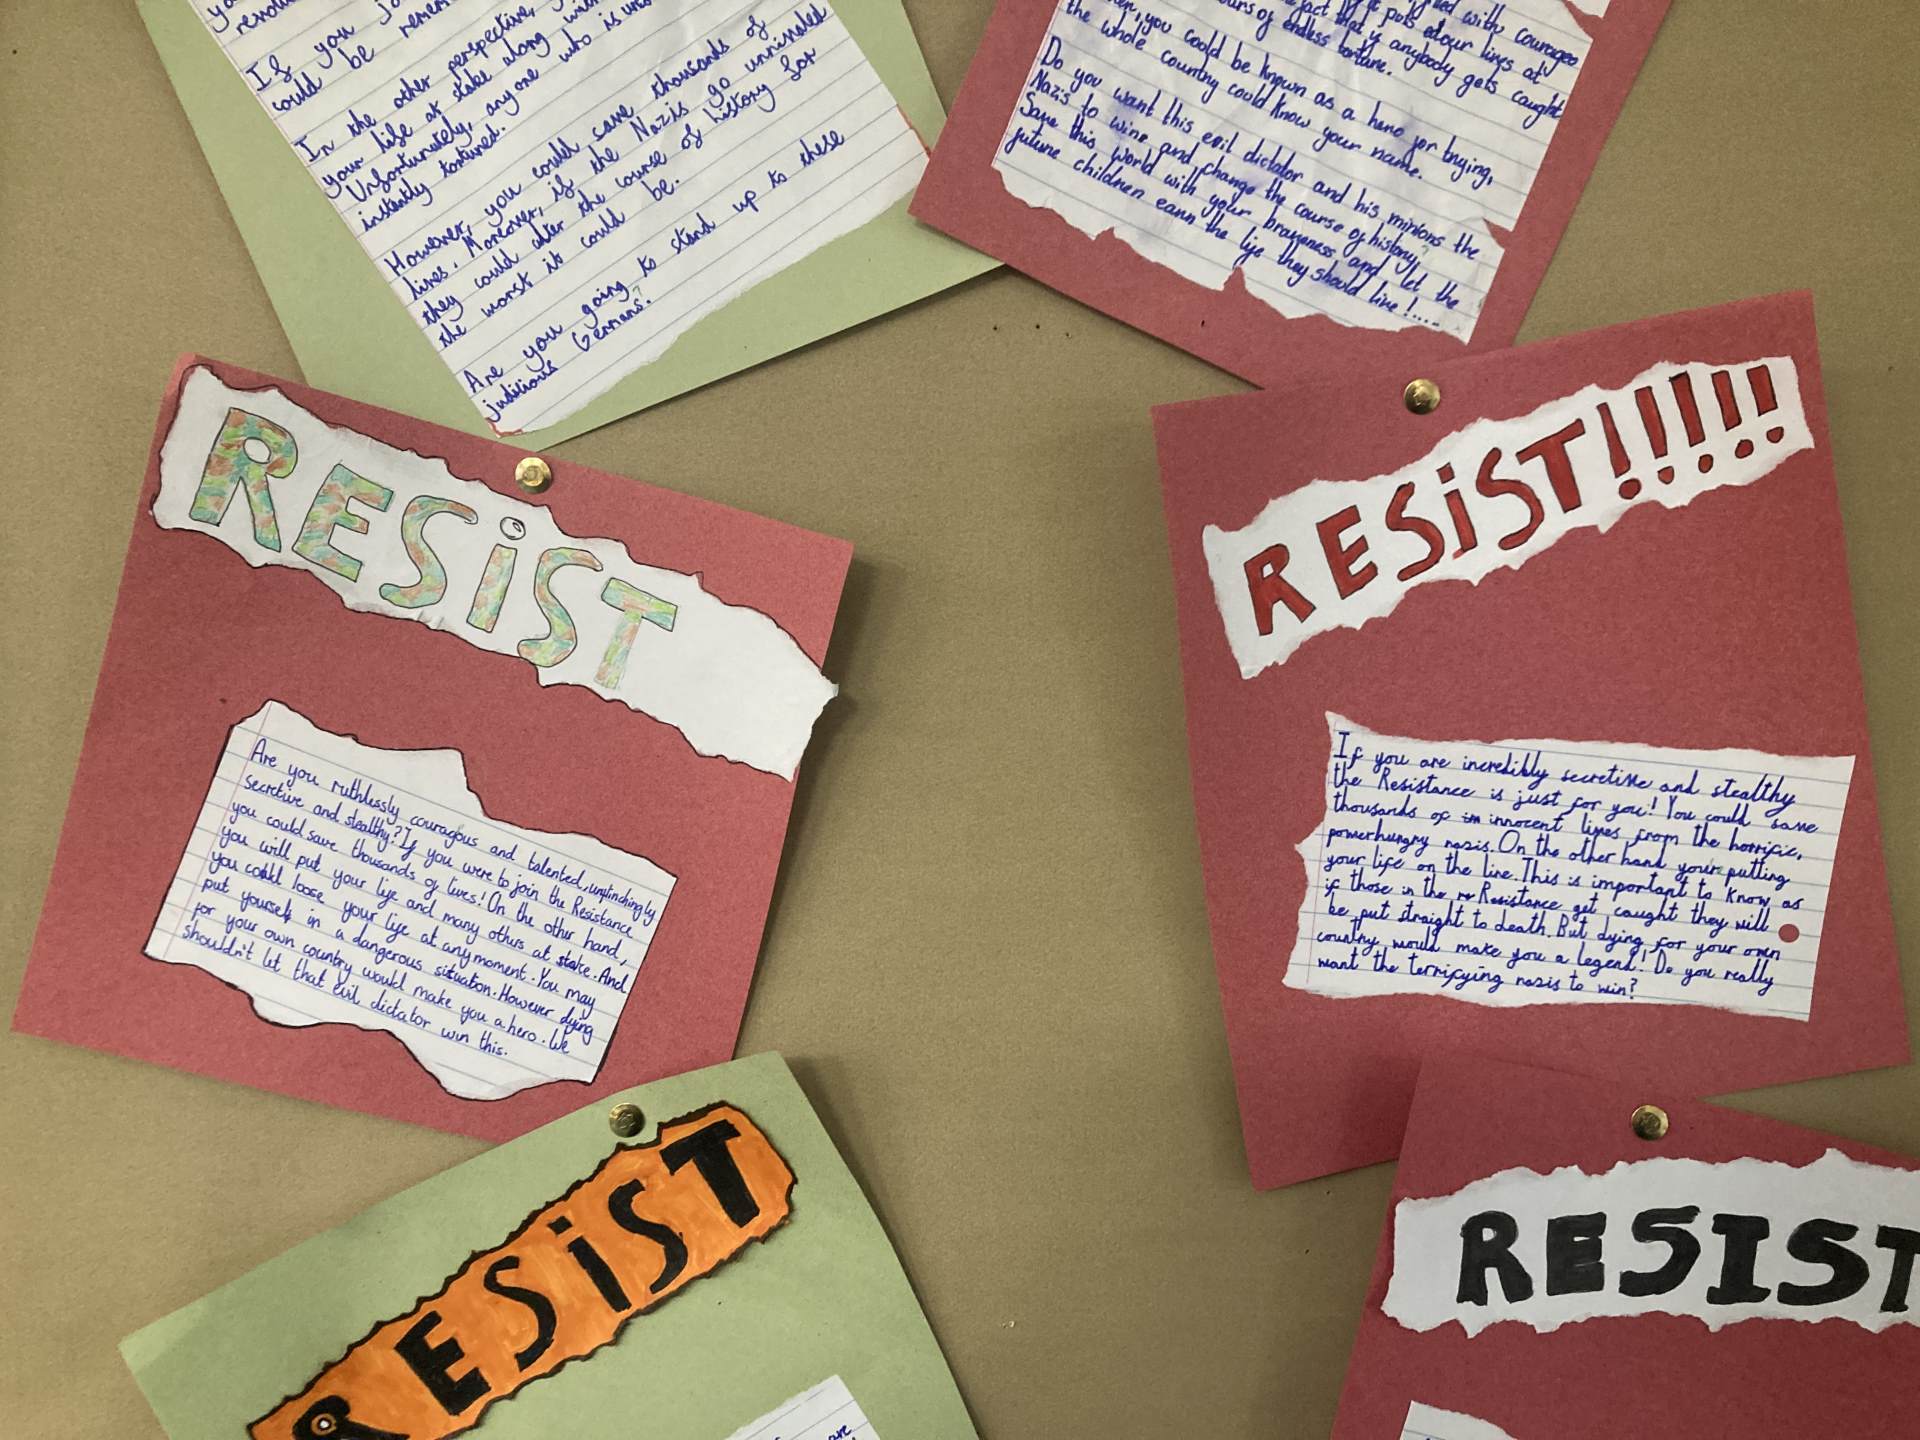 If you jo
could be remem
In the other perspective,
your life at stake along with
Unfortunately, anyone who is
instantly tortured.
However, you could save thousands of
lives. Moreover, if the Nazis go unrivaled
they could alter the course of history for
the worst it could be.
Are you going to stand up to these
judicious Germans?
with courageo
it puts our lives at
fact that if anybody gets caught
ours of endless torture.
you could be known as a hero for trying,
the whole country could know your name.
Do you want this evil dictator and his minions the
Nazis to wine and change the course of history?
Save this world with your braveness and let the
future children earn the life they should live!....
RESIST
Are you ruthlessly couragous and talented, unflinchingly
secretive and stealthy? If you were to join the Resistance
you could save thousands of lives! On the other hand,
you will put your life and many others at stake. And
you could loose your life at any moment. You may
put yourself in a dangerous situation. However dying
for your own country would make you a hero. We
shouldn't let that evil dictator win this.
RESIST!!!!!
If you are incredibly secretive and stealthy
the Resistance is just for you! You could save
thousands of innocent lives from the horrific,
powerhungry nazis. On the other hand your putting
your life on the line. This is important to know as
if those in the Resistance get caught they will
be put straight to death. But dying for your own
country would make you a legend! Do you really
want the terrifying nazis to win?
RESIST
are
RESIST